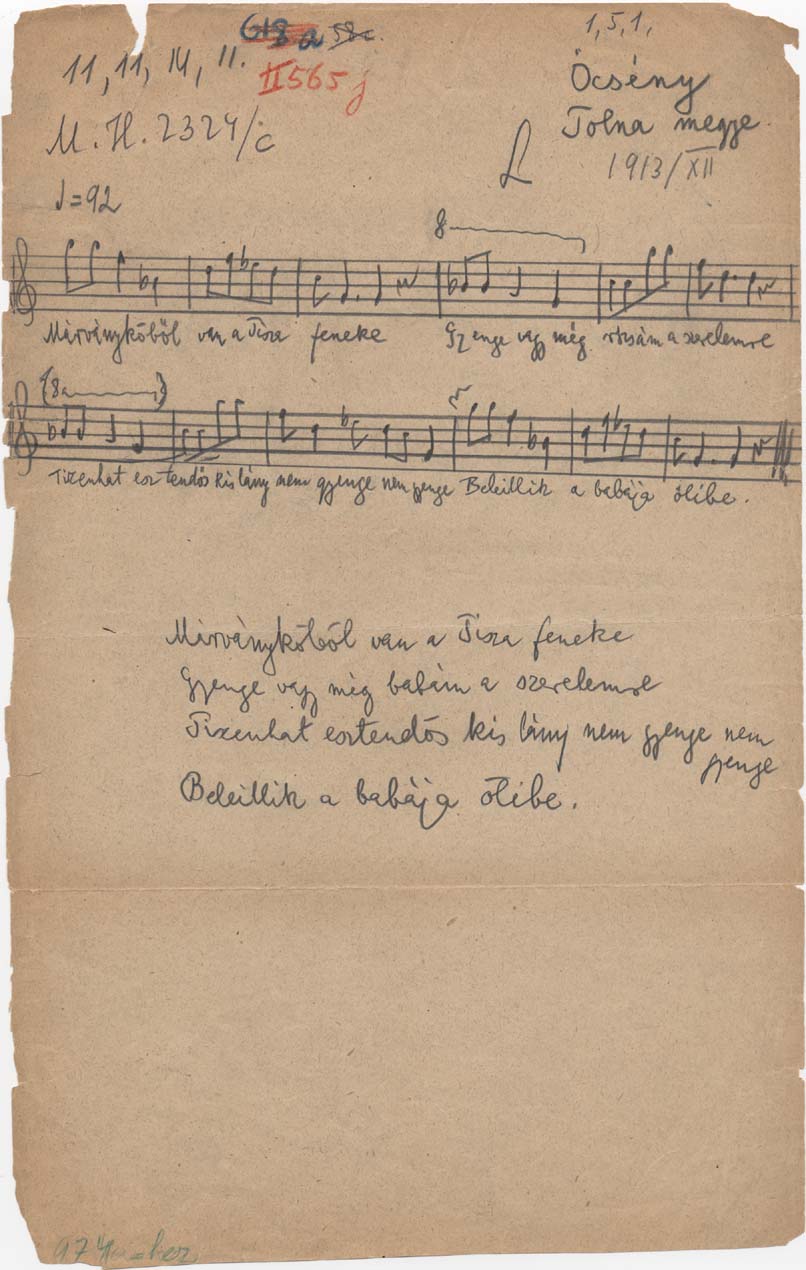 1, 5, 1,
11, 11, 14, 11.
II 565 j
Öcsény
Tolna megye.
M.H. 2324/c
1913/XII
L
♩=92
8
Márványkőből van a Tisza feneke Gyenge vagy még rózsám a szerelemre
(8)
Tizenhat esztendős kis lány nem gyenge nem gyenge Beleillik a babája ölibe.
Márványkőből van a Tisza feneke
Gyenge vagy még babám a szerelemre
Tizenhat esztendős kis lány nem gyenge nem
gyenge
Beleillik a babája ölibe.